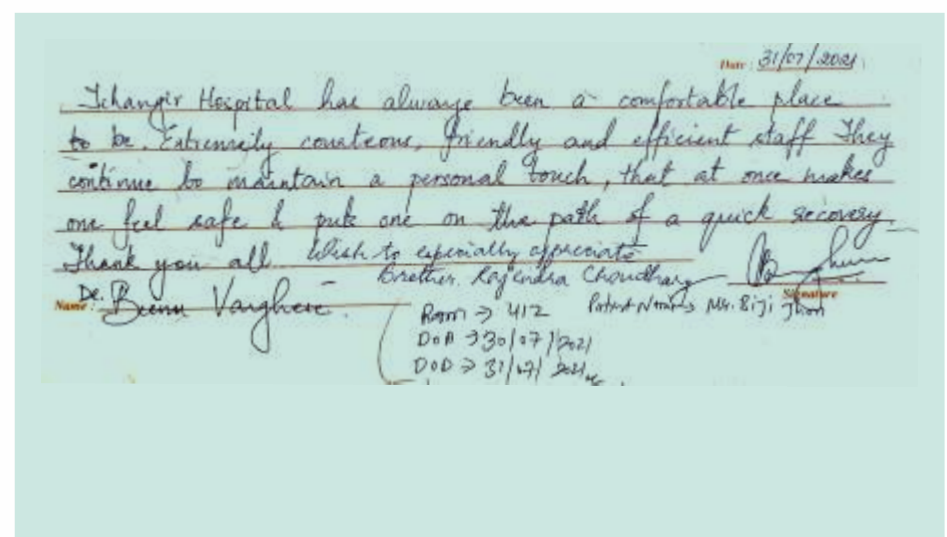 Date : 31/07/2021
Jehangir Hospital has always been a comfortable place
to be. Extremely courteous, friendly and efficient staff They
continue to maintain a personal touch, that at once makes
one feel safe & puts one on the path of a quick recovery.
Thank you all. Wish to especially appreciate
Brother. Rajendra Choudhary
Name : Dr. Beenu Varghese. Signature
Room → 412 Patient Name → Mr. Biji Jhon
DOA → 30/07/2021
DOD → 31/07/2021